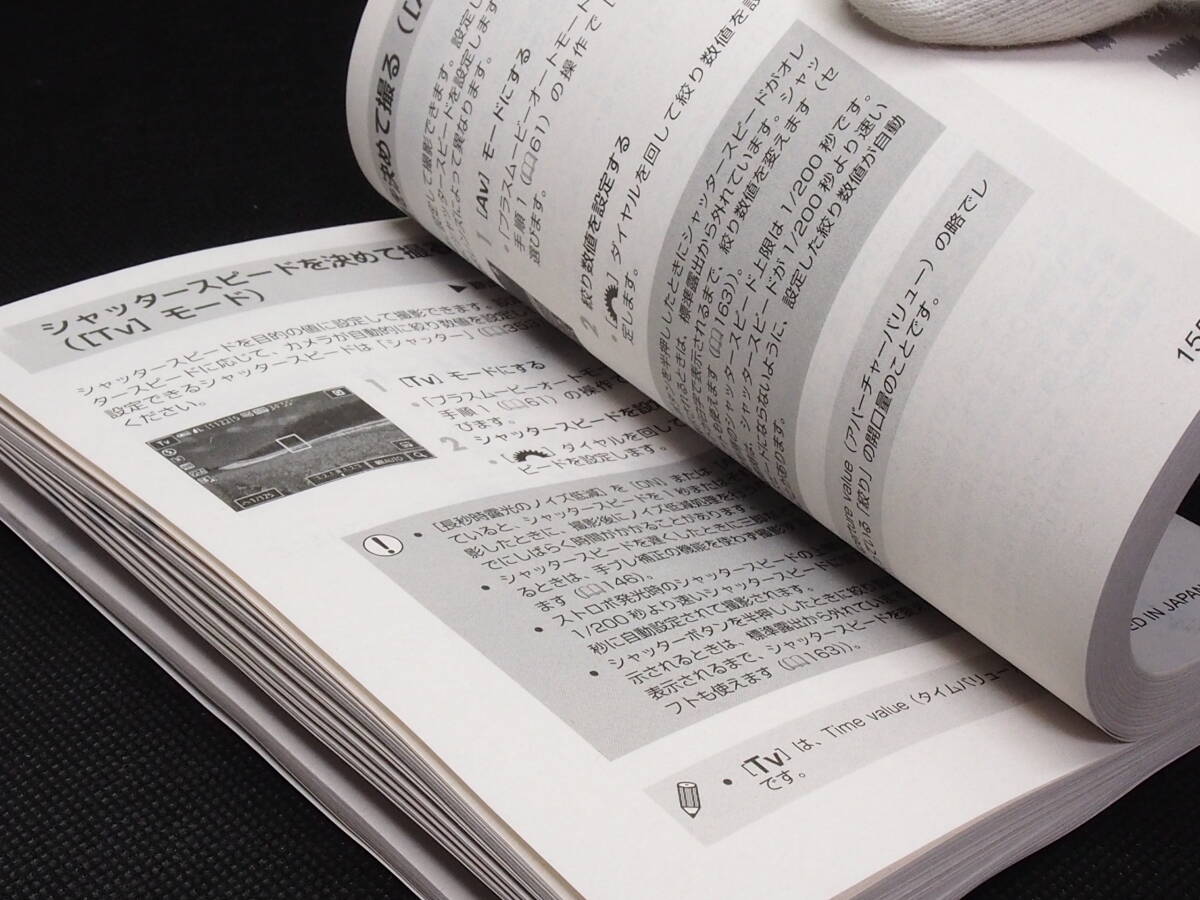 シャッタースピードを決めて撮
([Tv] モード)
シャッタースピードを目的の値に設定して撮影できます。設
タースピードに応じて、カメラが自動的に絞り数値を設定し
設定できるシャッタースピードは「シャッター」
ください。
1 [Tv] モードにする
●「プラスムービーオートモー
手順1 (61) の操作で
びます。
2 シャッタースピードを設
● [ ] ダイヤルを回して
ピードを設定します。
● [長秒時露光のノイズ低減] を [ON] または
ていると、シャッタースピードを1秒また
影したときに、撮影後にノイズ低減処理を行
でにしばらく時間がかかることがあります
● シャッタースピードを遅くしたときに三脚
るときは、手ブレ補正の機能を使わず撮影
ます (146)。
● ストロボ発光時のシャッタースピードの上
1/200 秒より速いシャッタースピードに
秒に自動設定されて撮影されます。
● シャッターボタンを半押ししたときに絞り
示されるときは、標準露出から外れてい
表示されるまで、シャッタースピードを
フトも使えます (163)。
● [Tv] は、Time value (タイムバリュー
です。
決めて撮る
して撮影できます。設定し
タースピードを設定します
によって異なります。
1 [Av] モードにする
●「プラスムービーオートモード
手順1 (61) の操作で [
選びます。
2 絞り数値を設定する
● [ ] ダイヤルを回して絞り数値を設
定します。
を半押ししたときにシャッタースピードがオレ
されるときは、標準露出から外れています。シャッ
が白で表示されるまで、絞り数値を変えます (セ
も使えます (163))。
のシャッタースピード上限は 1/200 秒です。
ャッタースピードが 1/200 秒より速い
ードにならないように、設定した絞り数値が自動
があります。
erture value (アパーチャーバリュー) の略でレ
ている「絞り」の開口量のことです。
ED IN JAPAN